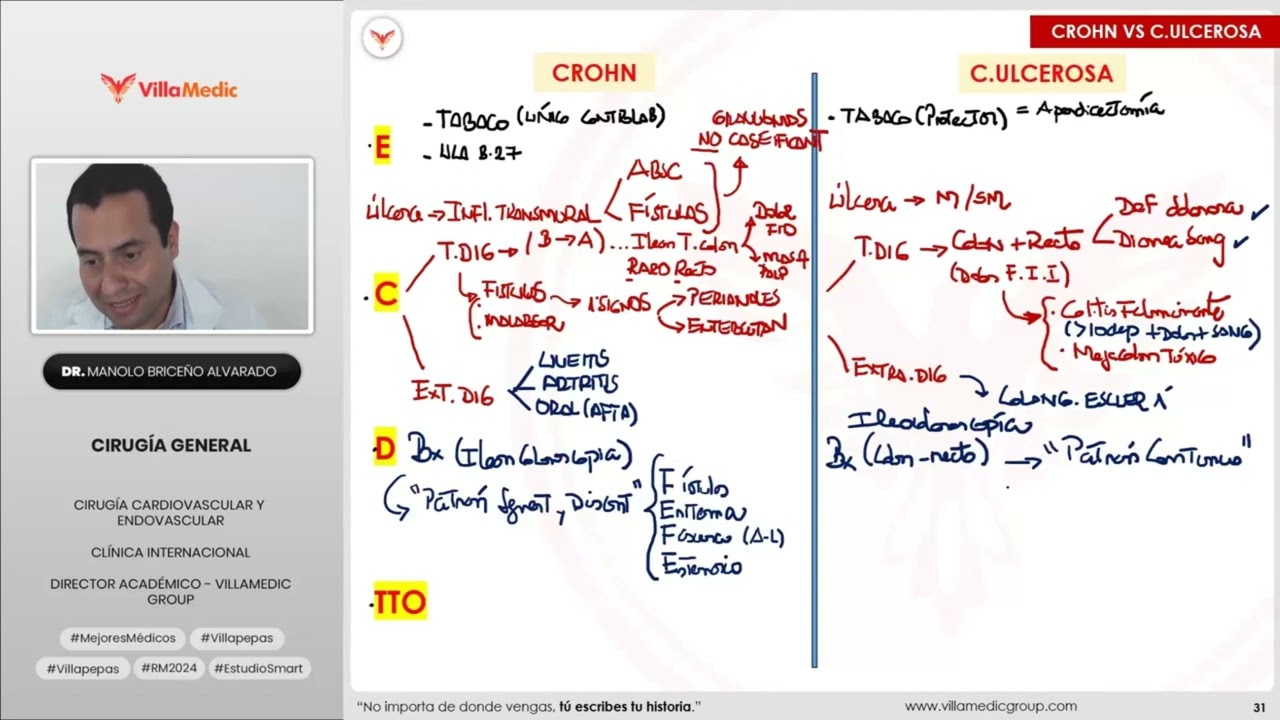 CROHN VS C.ULCEROSA
VillaMedic
DR. MANOLO BRICEÑO ALVARADO
CIRUGÍA GENERAL
CIRUGÍA CARDIOVASCULAR Y
ENDOVASCULAR
CLÍNICA INTERNACIONAL
DIRECTOR ACADÉMICO - VILLAMEDIC
GROUP
#MejoresMédicos #Villapepas
#Villapepas #RM2024 #EstudioSmart
CROHN
E
- TABACO (ÚNICO CONTROLAB)
- HLA B.27
GRANULOMAS
NO CASEIFICANT
Úlcera → INFL. TRANSMURAL
ABSC
FÍSTULAS
C
T.DIG → (B → A) ... Ileon T. colon
RARO RECTO
Dolor
FID
MASA
PALP
FISTULAS
MALABSOR
1°SIGNOS
PERIANALES
ENTEROCUTAN
EXT. DIG
UVEITIS
ARTRITIS
ORAL (AFTA)
D
Bx (Ileon Colonoscopia)
"Patrón Segment, y Discont"
Fístulas
Fisuras (A-L)
Estenosis
TTO
C.ULCEROSA
- TABACO (Protector) = Apendicectomía
Úlcera → M/SM
T.DIG → Colon + Recto
(Dolor F.I.I)
Diarrea Sang
Colitis Fulminante
(>10dep + Dolor + SANG)
Megacolon Tóxico
EXTRA.DIG
COLANG. ESCLER 1°
Ileocolonoscopía
Bx (Colon-recto) → "Patrón Continuo"
"No importa de donde vengas, tú escribes tu historia."
www.villamedicgroup.com
31